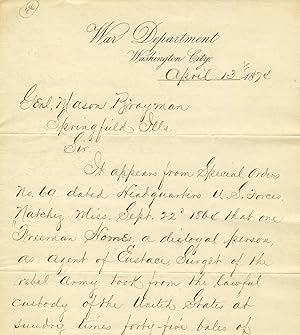 War Department
Washington City
April 13th 1874
Genl Mason Brayman
Springfield Ills.
Sir
It appears from Special Orders
No. 69 dated Headquarters U.S. Forces,
Natchez Miss. Sept. 22d 1864 that one
Freeman Homes, a disloyal person,
as agent of Eustace Surget of the
rebel Army took from the lawful
custody of the United States at
sundry times forty-five bales of